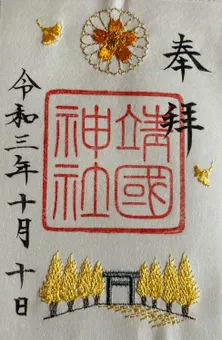 奉拝
靖國神社
令和三年十月十日